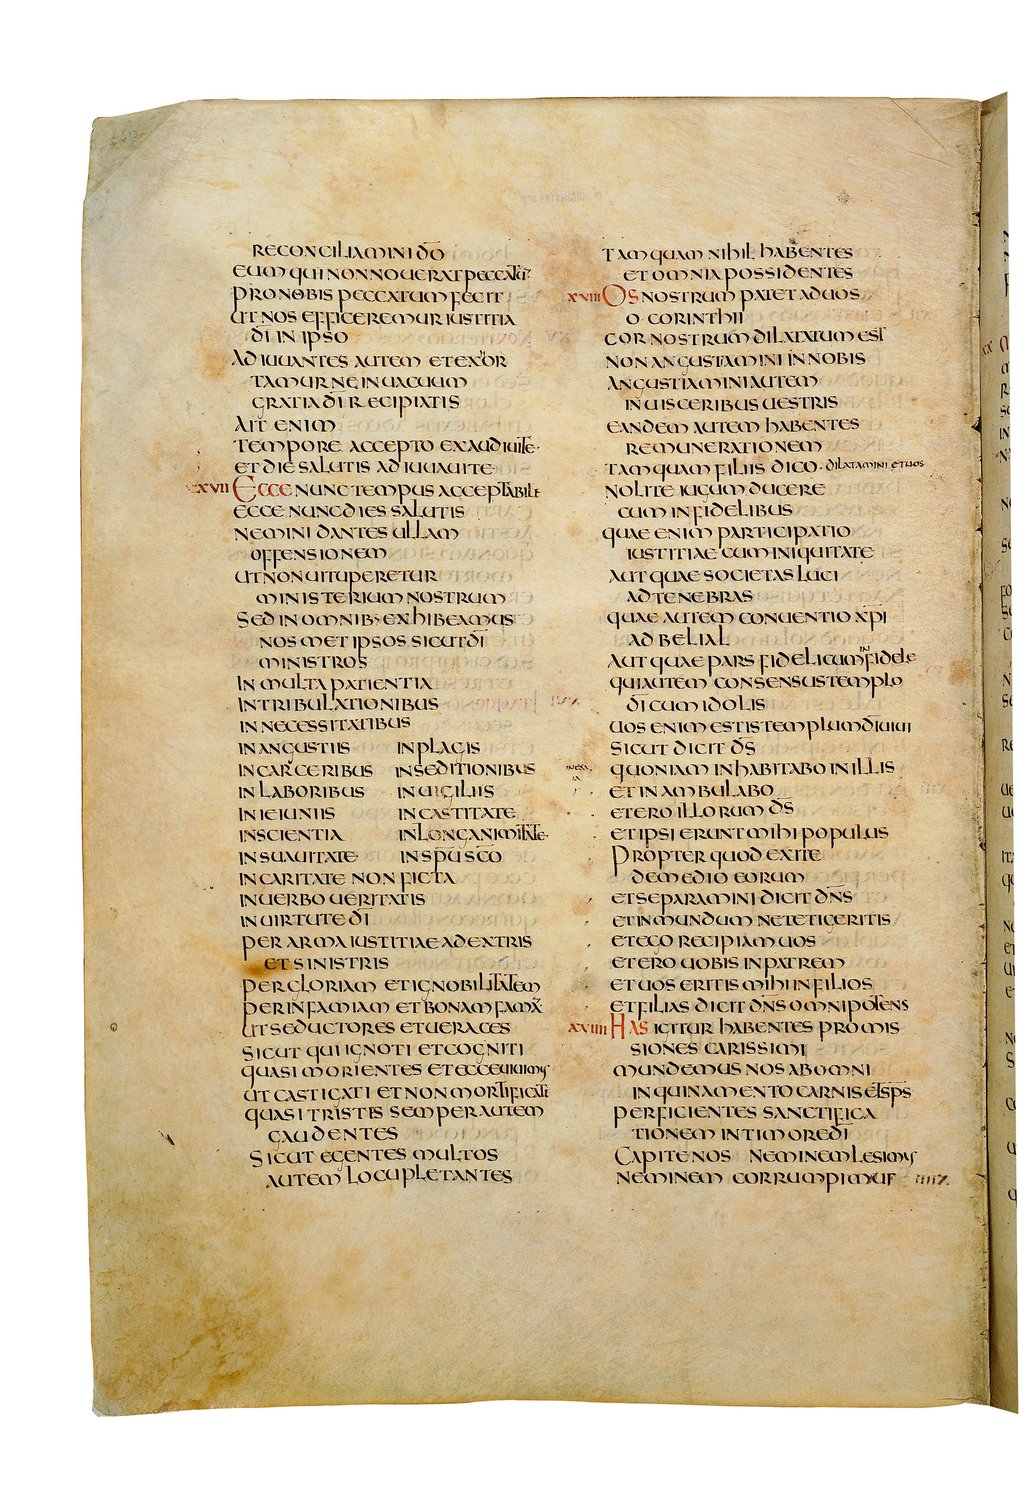 RECONCILIAMINI DO
EUM QUI NON NOUERAT PECCATU
PRO NOBIS PECCATUM FECIT
UT NOS EFFICEREMUR IUSTITIA
DI IN IPSO
ADIUUANTES AUTEM ET EXOR
TAMUR NE IN UACUUM
GRATIA DI RECIPIATIS
AIT ENIM
TEMPORE ACCEPTO EXAUDIUI TE
ET DIE SALUTIS ADIUUAUI TE
XVII ECCE NUNC TEMPUS ACCEPTABILE
ECCE NUNC DIES SALUTIS
NEMINI DANTES ULLAM
OFFENSIONEM
UT NON UITUPERETUR
MINISTERIUM NOSTRUM
SED IN OMNIB· EXHIBEAMUS
NOSMET IPSOS SICUT DI
MINISTROS
IN MULTA PATIENTIA
IN TRIBULATIONIBUS
IN NECESSITATIBUS
IN ANGUSTIIS IN PLAGIS
IN CARCERIBUS IN SEDITIONIBUS
IN LABORIBUS IN UIGILIIS
IN IEIUNIIS IN CASTITATE
IN SCIENTIA IN LONGANIMITATE
IN SUAUITATE IN SPU SCO
IN CARITATE NON FICTA
IN UERBO UERITATIS
IN UIRTUTE DI
PER ARMA IUSTITIAE A DEXTRIS
ET SINISTRIS
PER GLORIAM ET IGNOBILITATEM
PER INFAMIAM ET BONAM FAMA
UT SEDUCTORES ET UERACES
SICUT QUI IGNOTI ET COGNITI
QUASI MORIENTES ET ECCE UIUIMUS
UT CASTIGATI ET NON MORTIFICATI
QUASI TRISTES SEMPER AUTEM
GAUDENTES
SICUT EGENTES MULTOS
AUTEM LOCUPLETANTES
TAMQUAM NIHIL HABENTES
ET OMNIA POSSIDENTES
XVIII OS NOSTRUM PATET AD UOS
O· CORINTHII
COR NOSTRUM DILATATUM EST
NON ANGUSTIAMINI IN NOBIS
ANGUSTIAMINI AUTEM
IN UISCERIBUS UESTRIS
EANDEM AUTEM HABENTES
REMUNERATIONEM
TAMQUAM FILIIS DICO· DILATAMINI ET UOS
NOLITE IUGUM DUCERE
CUM INFIDELIBUS
QUAE ENIM PARTICIPATIO
IUSTITIAE CUM INIQUITATE
AUT QUAE SOCIETAS LUCI
AD TENEBRAS
QUAE AUTEM CONUENTIO XPI
AD BELIAL
AUT QUAE PARS FIDELI CUM INFIDELE
QUI AUTEM CONSENSUS TEMPLO
DI CUM IDOLIS
UOS ENIM ESTIS TEMPLUM DI UIUI
SICUT DICIT DS
QUONIAM INHABITABO IN ILLIS
ET INAMBULABO
ET ERO ILLORUM DS
ET IPSI ERUNT MIHI POPULUS
PROPTER QUOD EXITE
DE MEDIO EORUM
ET SEPARAMINI DICIT DNS
ET INMUNDUM NE TETIGERITIS
ET EGO RECIPIAM UOS
ET ERO UOBIS IN PATREM
ET UOS ERITIS MIHI IN FILIOS
ET FILIAS DICIT DNS OMNIPOTENS
XVIIII HAS IGITUR HABENTES PROMIS
SIONES CARISSIMI
MUNDEMUS NOS AB OMNI
INQUINAMENTO CARNIS ET SPS
PERFICIENTES SANCTIFICA
TIONEM IN TIMORE DI
CAPITE NOS NEMINEM LESIMUS
NEMINEM CORRUMPIMUS